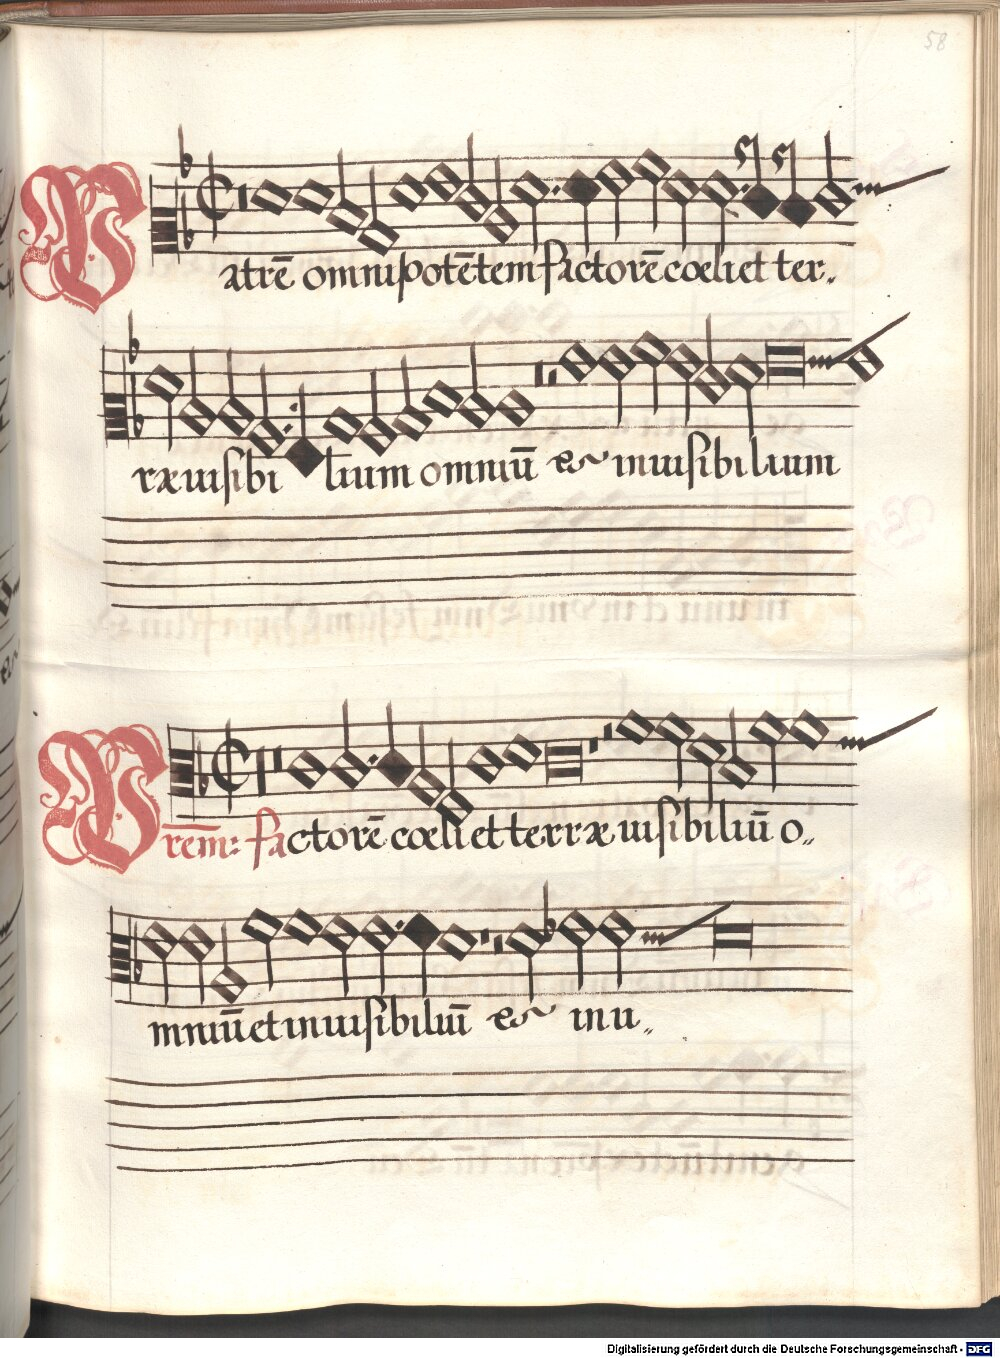 58
Patrē omnipotētem factorē cœli et ter„
ræ uisibilium omniū et inuisibilium
Prēm: factorē cœli et terræ uisibiliū o„
mniū et inuisibiliū et inu„
Digitalisierung gefördert durch die Deutsche Forschungsgemeinschaft - DFG